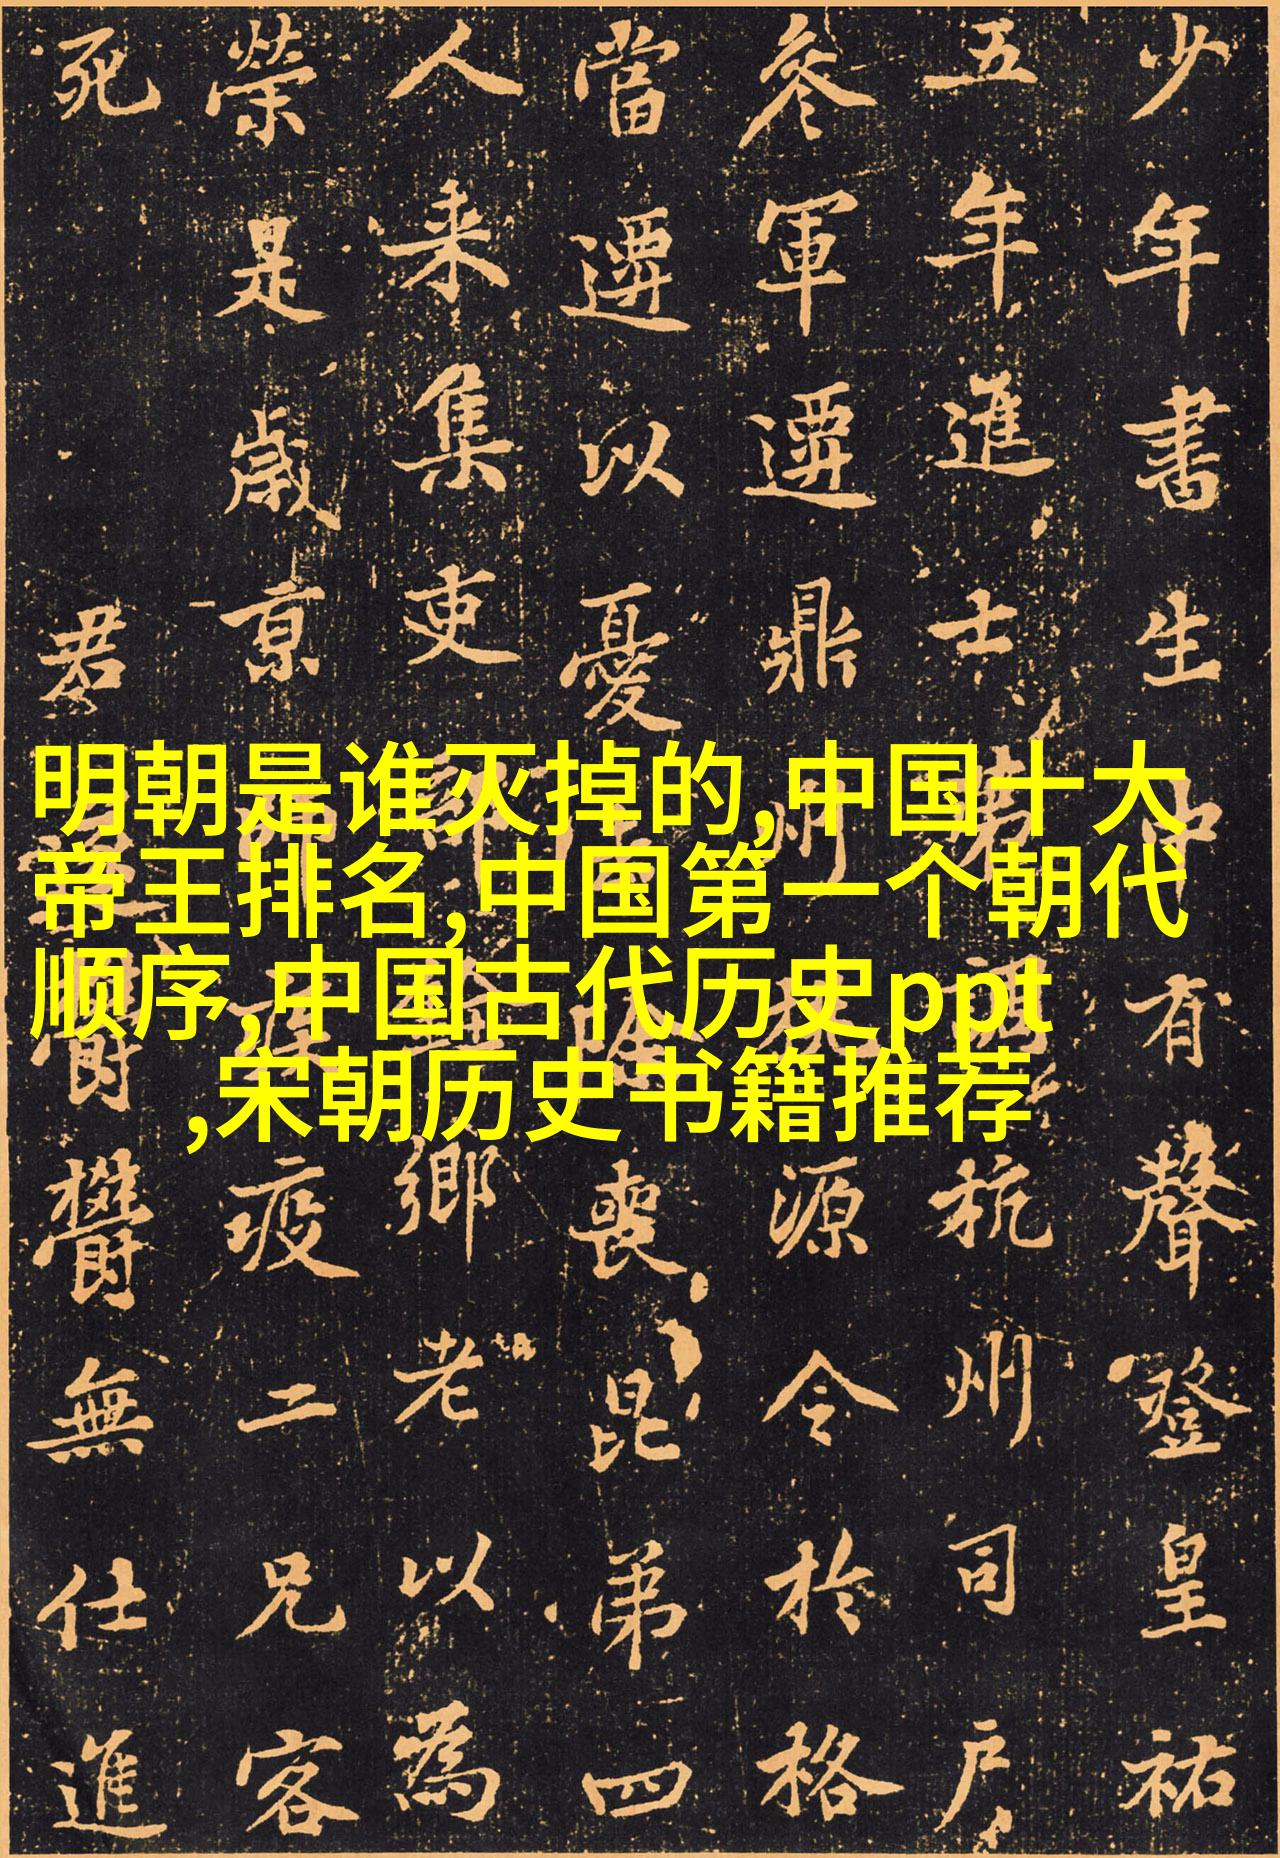 明朝是谁灭掉的,中国十大
帝王排名,中国第一个朝代
顺序,中国古代历史ppt
,宋朝历史书籍推荐
少年書生中有聲登皇祐
五年進士第調杭州司戶
叅軍遷鼎州桃源令於格
當遷以憂去喪昆弟四
人来集吏鄉老以為
榮是歲京師疫二兄客
死 君欝欝無仕進